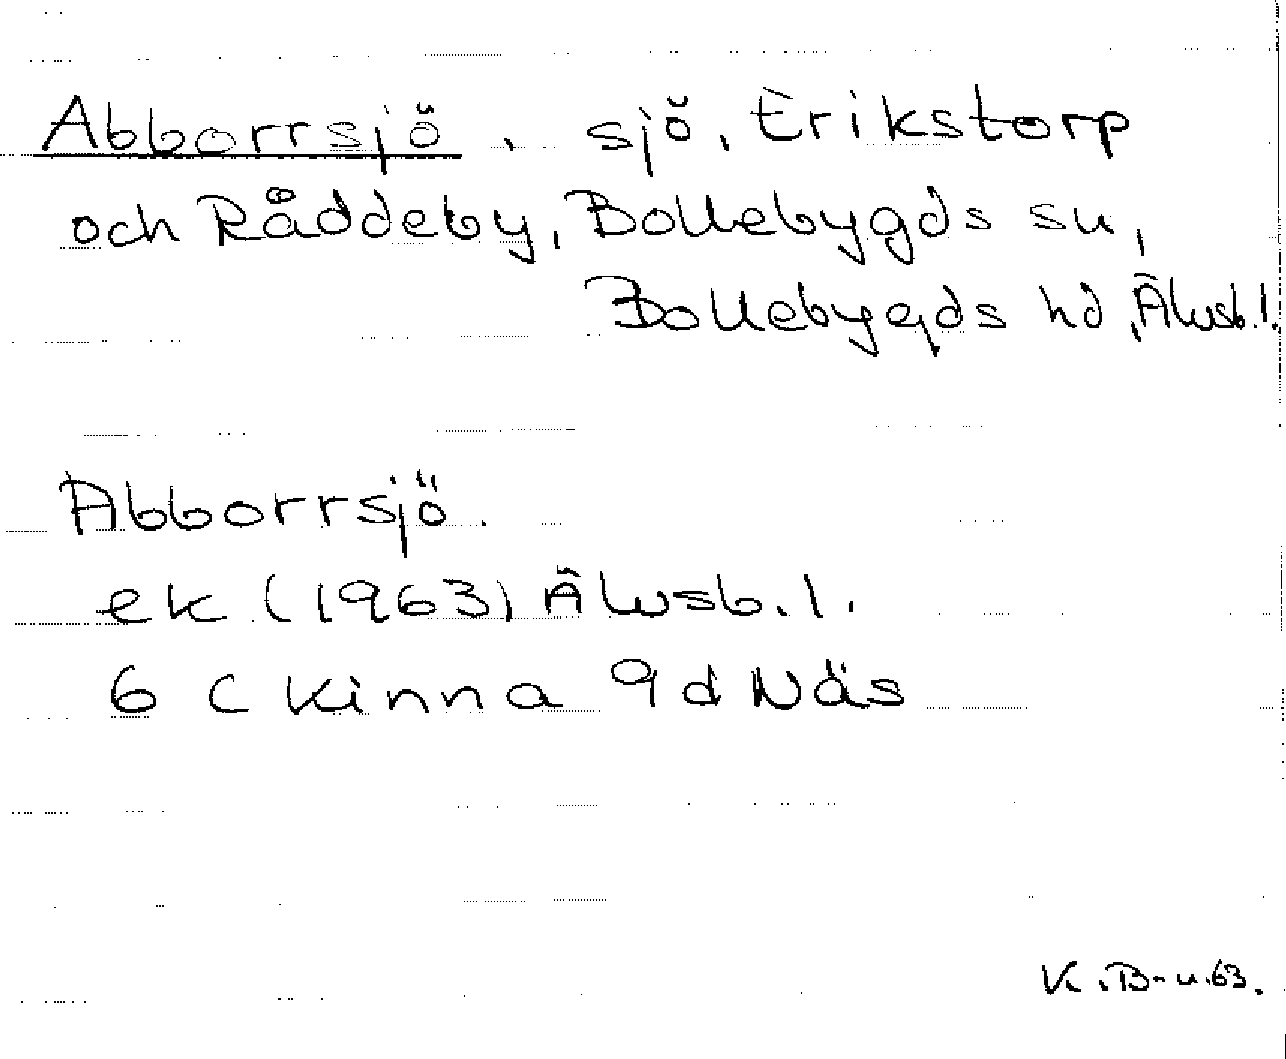 Abborrsjö, sjö, Erikstorp
och Råddeby, Bollebygds sn,
Bollebygds hd, Älvsb.l.
Abborrsjö.
ek (1963) Älvsb.l.
6 C Kinna 9d Näs
K.B-n.63.